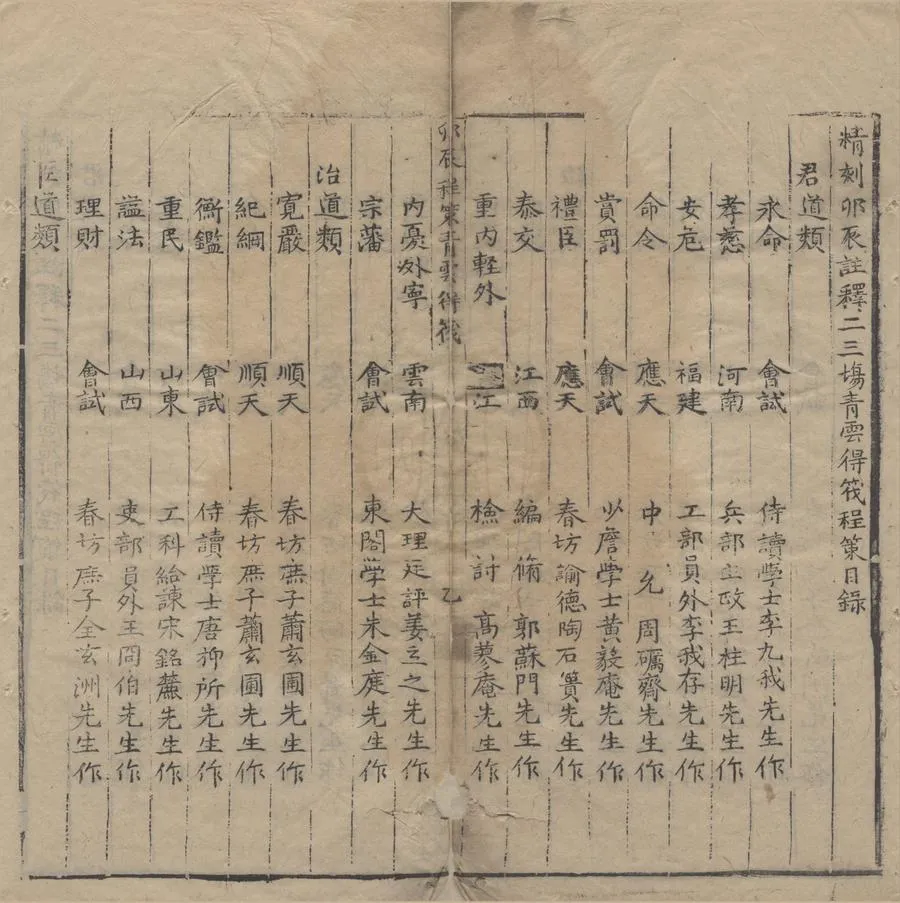 精刻卯辰註釋二三塲青雲得筏程策目錄
君道類
永命 會試 侍讀學士李九我先生作
孝慈 河南 兵部主政王柱明先生作
安危 福建 工部員外李我存先生作
命令 應天 中允周礪齋先生作
賞罰 會試 少詹學士黃毅庵先生作
禮臣 應天 春坊諭德陶石簣先生作
泰交 江西 編脩郭蘇門先生作
重内輕外 江 檢討高蓼庵先生作
卯辰程策青雲得筏 乙
内憂外寧 雲南 大理廷評姜立之先生作
宗藩 會試 東閣學士朱金庭先生作
治道類
寬嚴 順天 春坊庶子蕭玄圃先生作
紀綱 順天 春坊庶子蕭玄圃先生作
衡鑑 會試 侍讀學士唐抑所先生作
重民 山東 工科給諫宋銘蘪先生作
謚法 山西 吏部員外王冏伯先生作
理財 會試 春坊庶子全玄洲先生作
道類